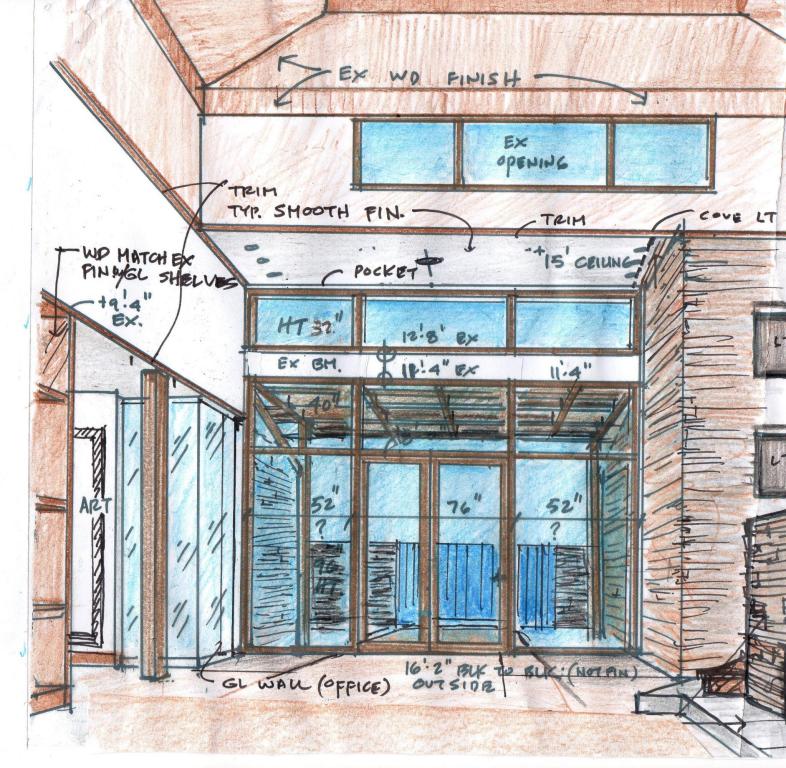 EX WD FINISH
EX
OPENING
TRIM
TYP. SMOOTH FIN.
TRIM
COVE LT
WD MATCH EX
SHELVES
+9'-4"
EX.
POCKET
+-15' CEILING
HT 32"
12'8' EX
EX BM.
11'-4" EX
11'-4"
40"
ART
52"
?
76"
52"
?
96
HT
GL WALL (OFFICE)
16'-2" BLK TO BLK. (NOT FIN)
OUTSIDE